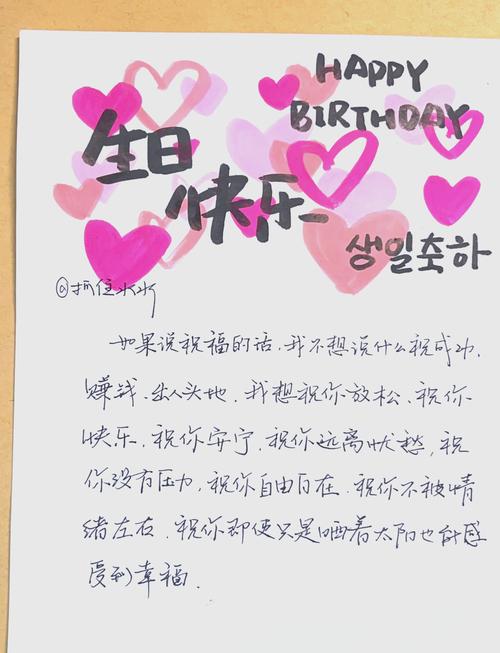 HAPPY
BIRTHDAY
生日
快乐
생일축하
@抓住水水
如果说祝福的话,我不想说什么祝成功,
赚钱、出人头地,我想祝你放松、祝你
快乐,祝你安宁,祝你远离忧愁,祝
你没有压力,祝你自由自在,祝你不被情
绪左右,祝你即便只是晒着太阳也能感
受到幸福.